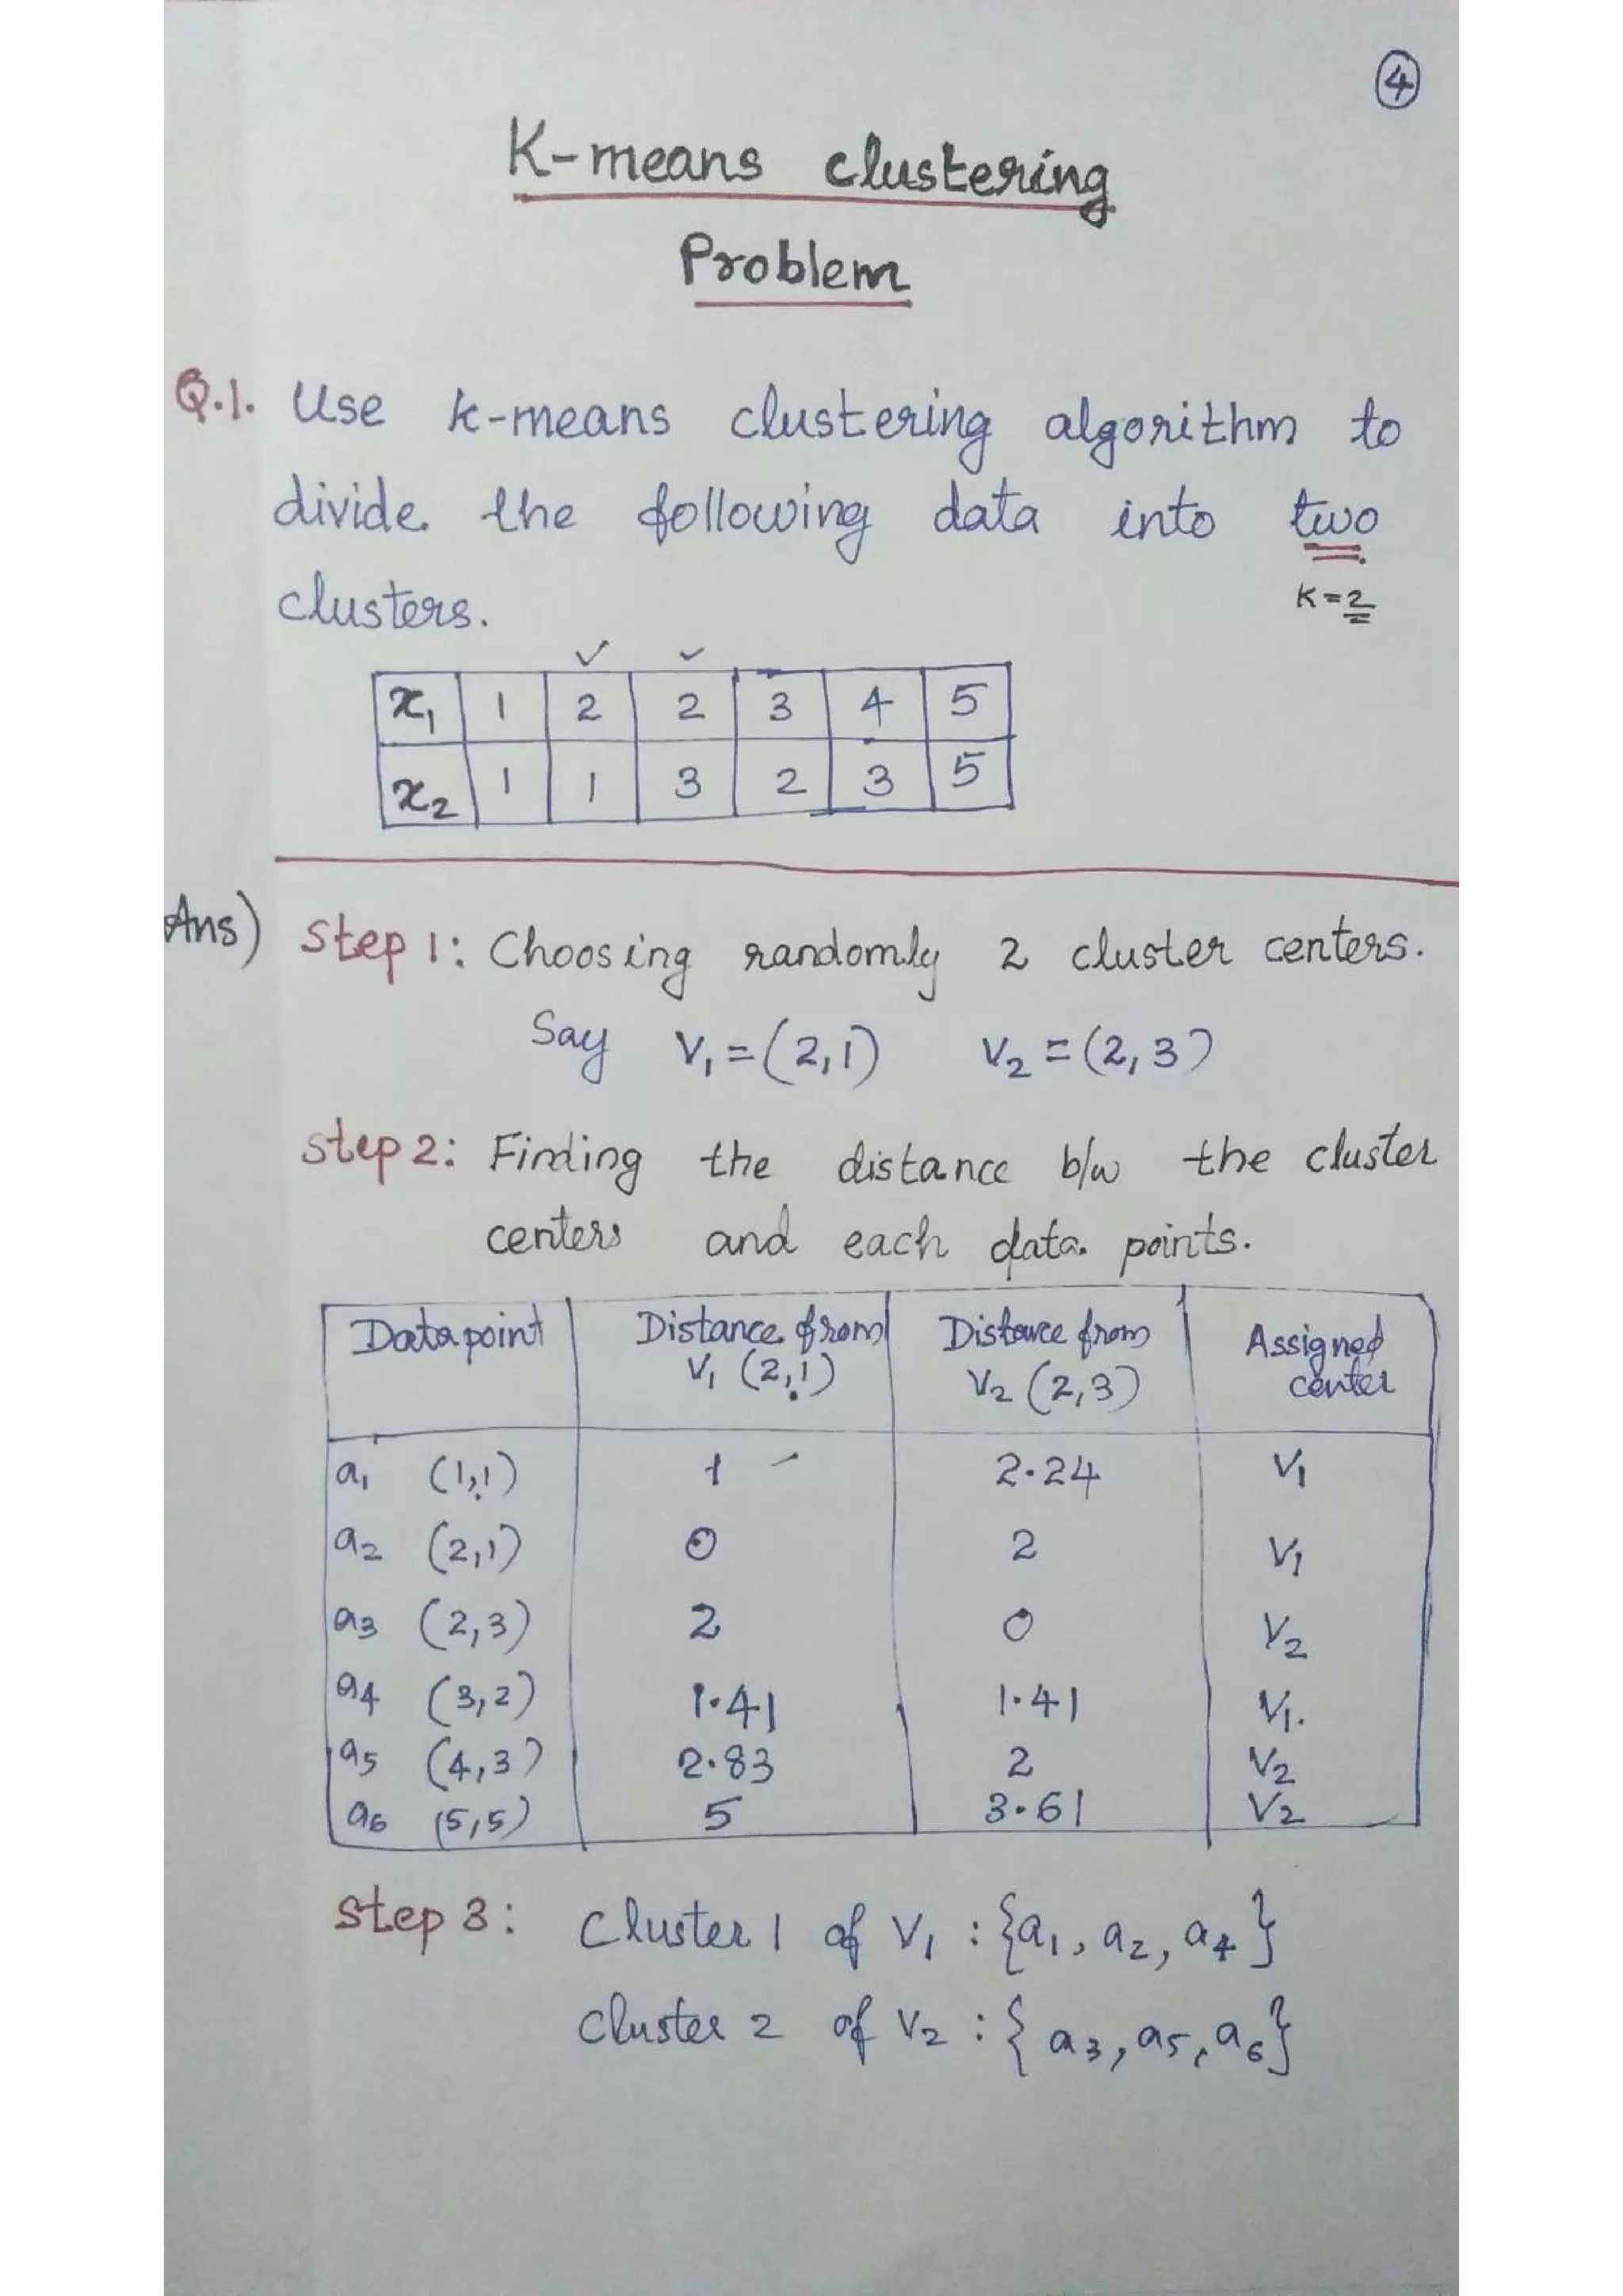 4
K-means clustering
Problem
Q.1. Use k-means clustering algorithm to
divide the following data into two
clusters. K=2
x₁ 1 2 2 3 4 5
x₂ 1 1 3 2 3 5
Ans) Step 1: Choosing randomly 2 cluster centers.
Say V₁ = (2,1) V₂ = (2,3)
Step 2: Finding the distance b/w the cluster
centers and each data points.
Data point Distance from V₁ (2,1) Distance from V₂ (2,3) Assigned center
a₁ (1,1) 1 2.24 V₁
a₂ (2,1) 0 2 V₁
a₃ (2,3) 2 0 V₂
a₄ (3,2) 1.41 1.41 V₁.
a₅ (4,3) 2.83 2 V₂
a₆ (5,5) 5 3.61 V₂
Step 3: Cluster 1 of V₁ : {a₁, a₂, a₄}
Cluster 2 of V₂ : {a₃, a₅, a₆}